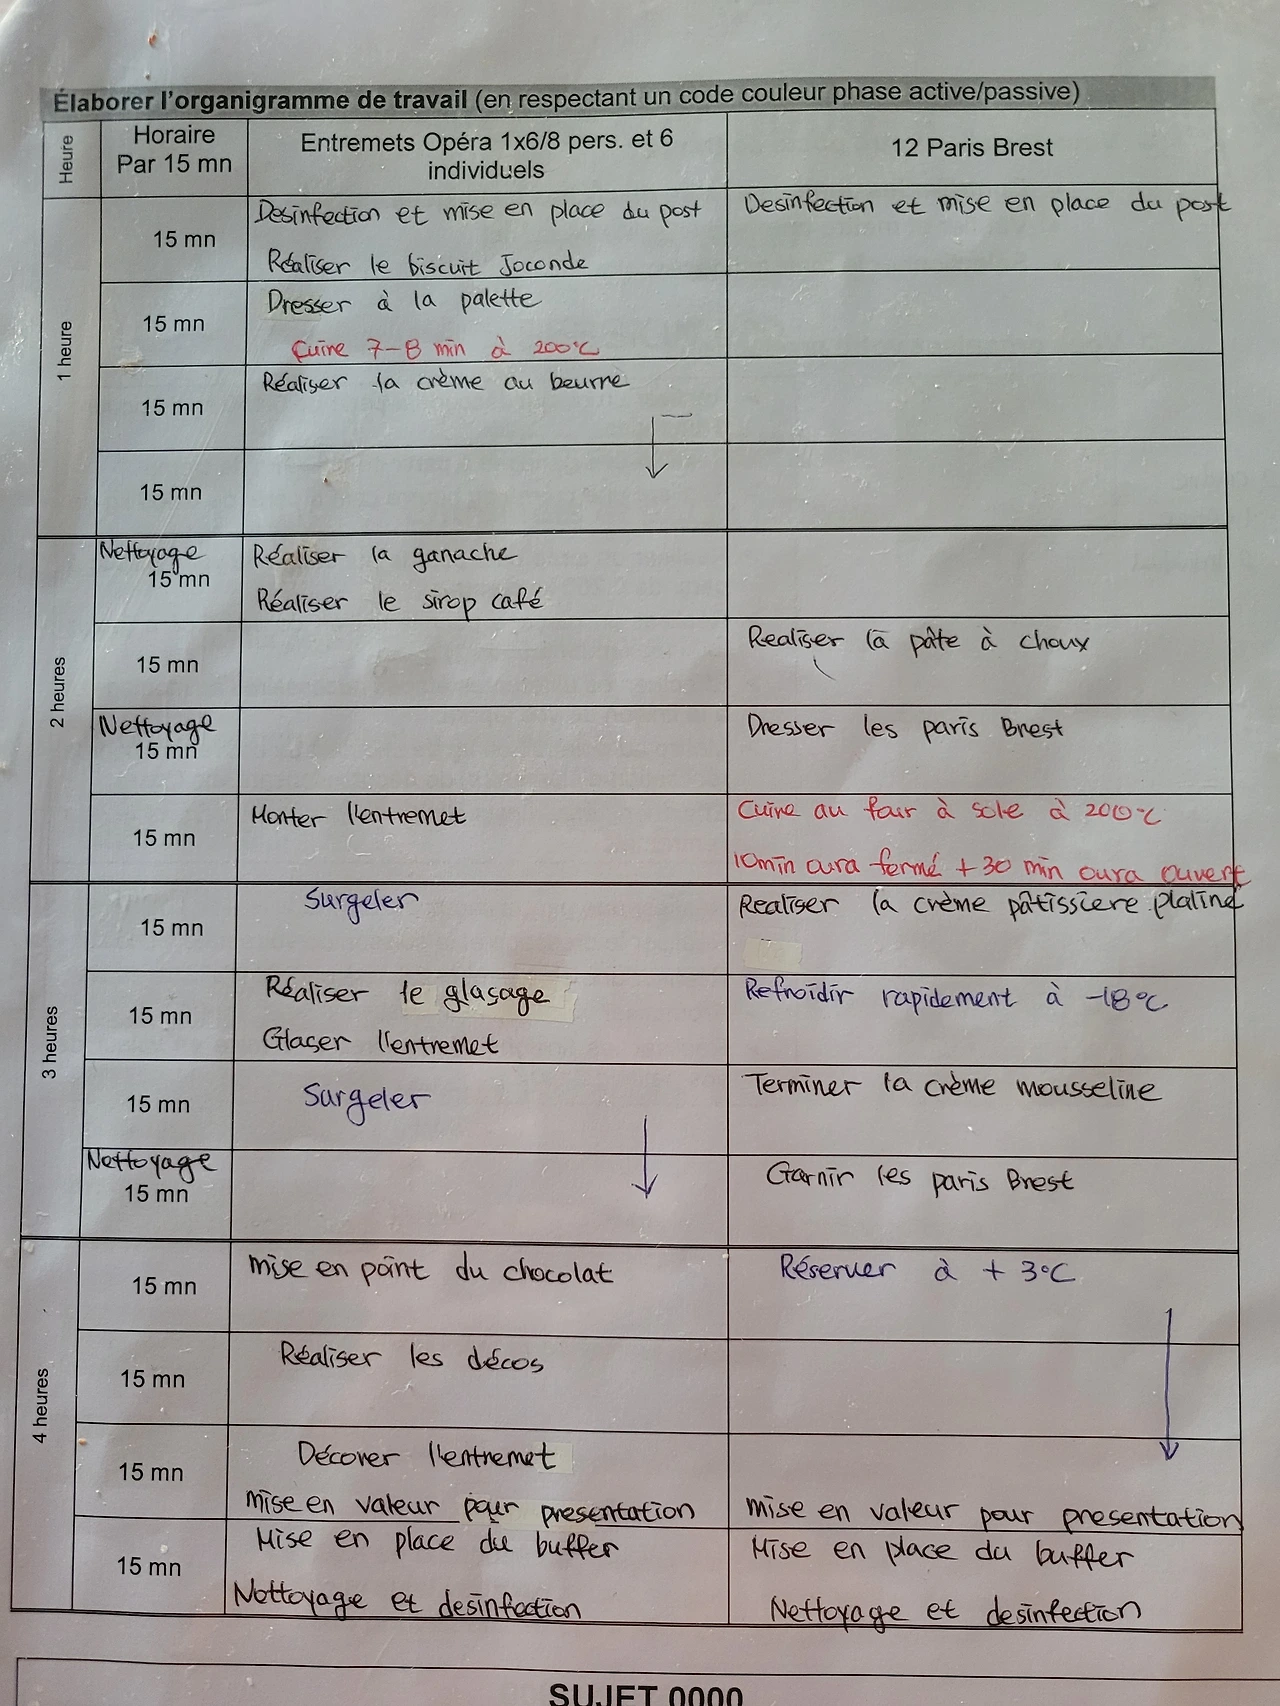 Élaborer l'organigramme de travail (en respectant un code couleur phase active/passive)
Heure
Horaire
Par 15 mn
Entremets Opéra 1x6/8 pers. et 6
individuels
12 Paris Brest
1 heure
15 mn
Desinfection et mise en place du post
Réaliser le biscuit Joconde
Desinfection et mise en place du post
15 mn
Dresser à la palette
Cuire 7-8 min à 200°C
15 mn
Réaliser la crème au beurre
15 mn
2 heures
Nettoyage
15 mn
Réaliser la ganache
Réaliser le sirop café
15 mn
Realiser la pâte à choux
Nettoyage
15 mn
Dresser les paris Brest
15 mn
Monter l'entremet
Cuire au four à sole à 200°C
10min oura fermé + 30 min oura ouvert
3 heures
15 mn
Surgeler
Realiser la crème pâtissiere pläliné
15 mn
Réaliser le glaçage
Glacer l'entremet
Refroidir rapidement à -18°C
15 mn
Surgeler
Terminer la crème mousseline
Nettoyage
15 mn
Garnir les paris Brest
4 heures
15 mn
mise en point du chocolat
Réserver à + 3°C
15 mn
Réaliser les décos
15 mn
Décorer l'entremet
mise en valeur pour presentation
mise en valeur pour presentation
15 mn
Mise en place du buffer
Nettoyage et desinfection
Mise en place du buffer
Nettoyage et desinfection
SUJET 0000